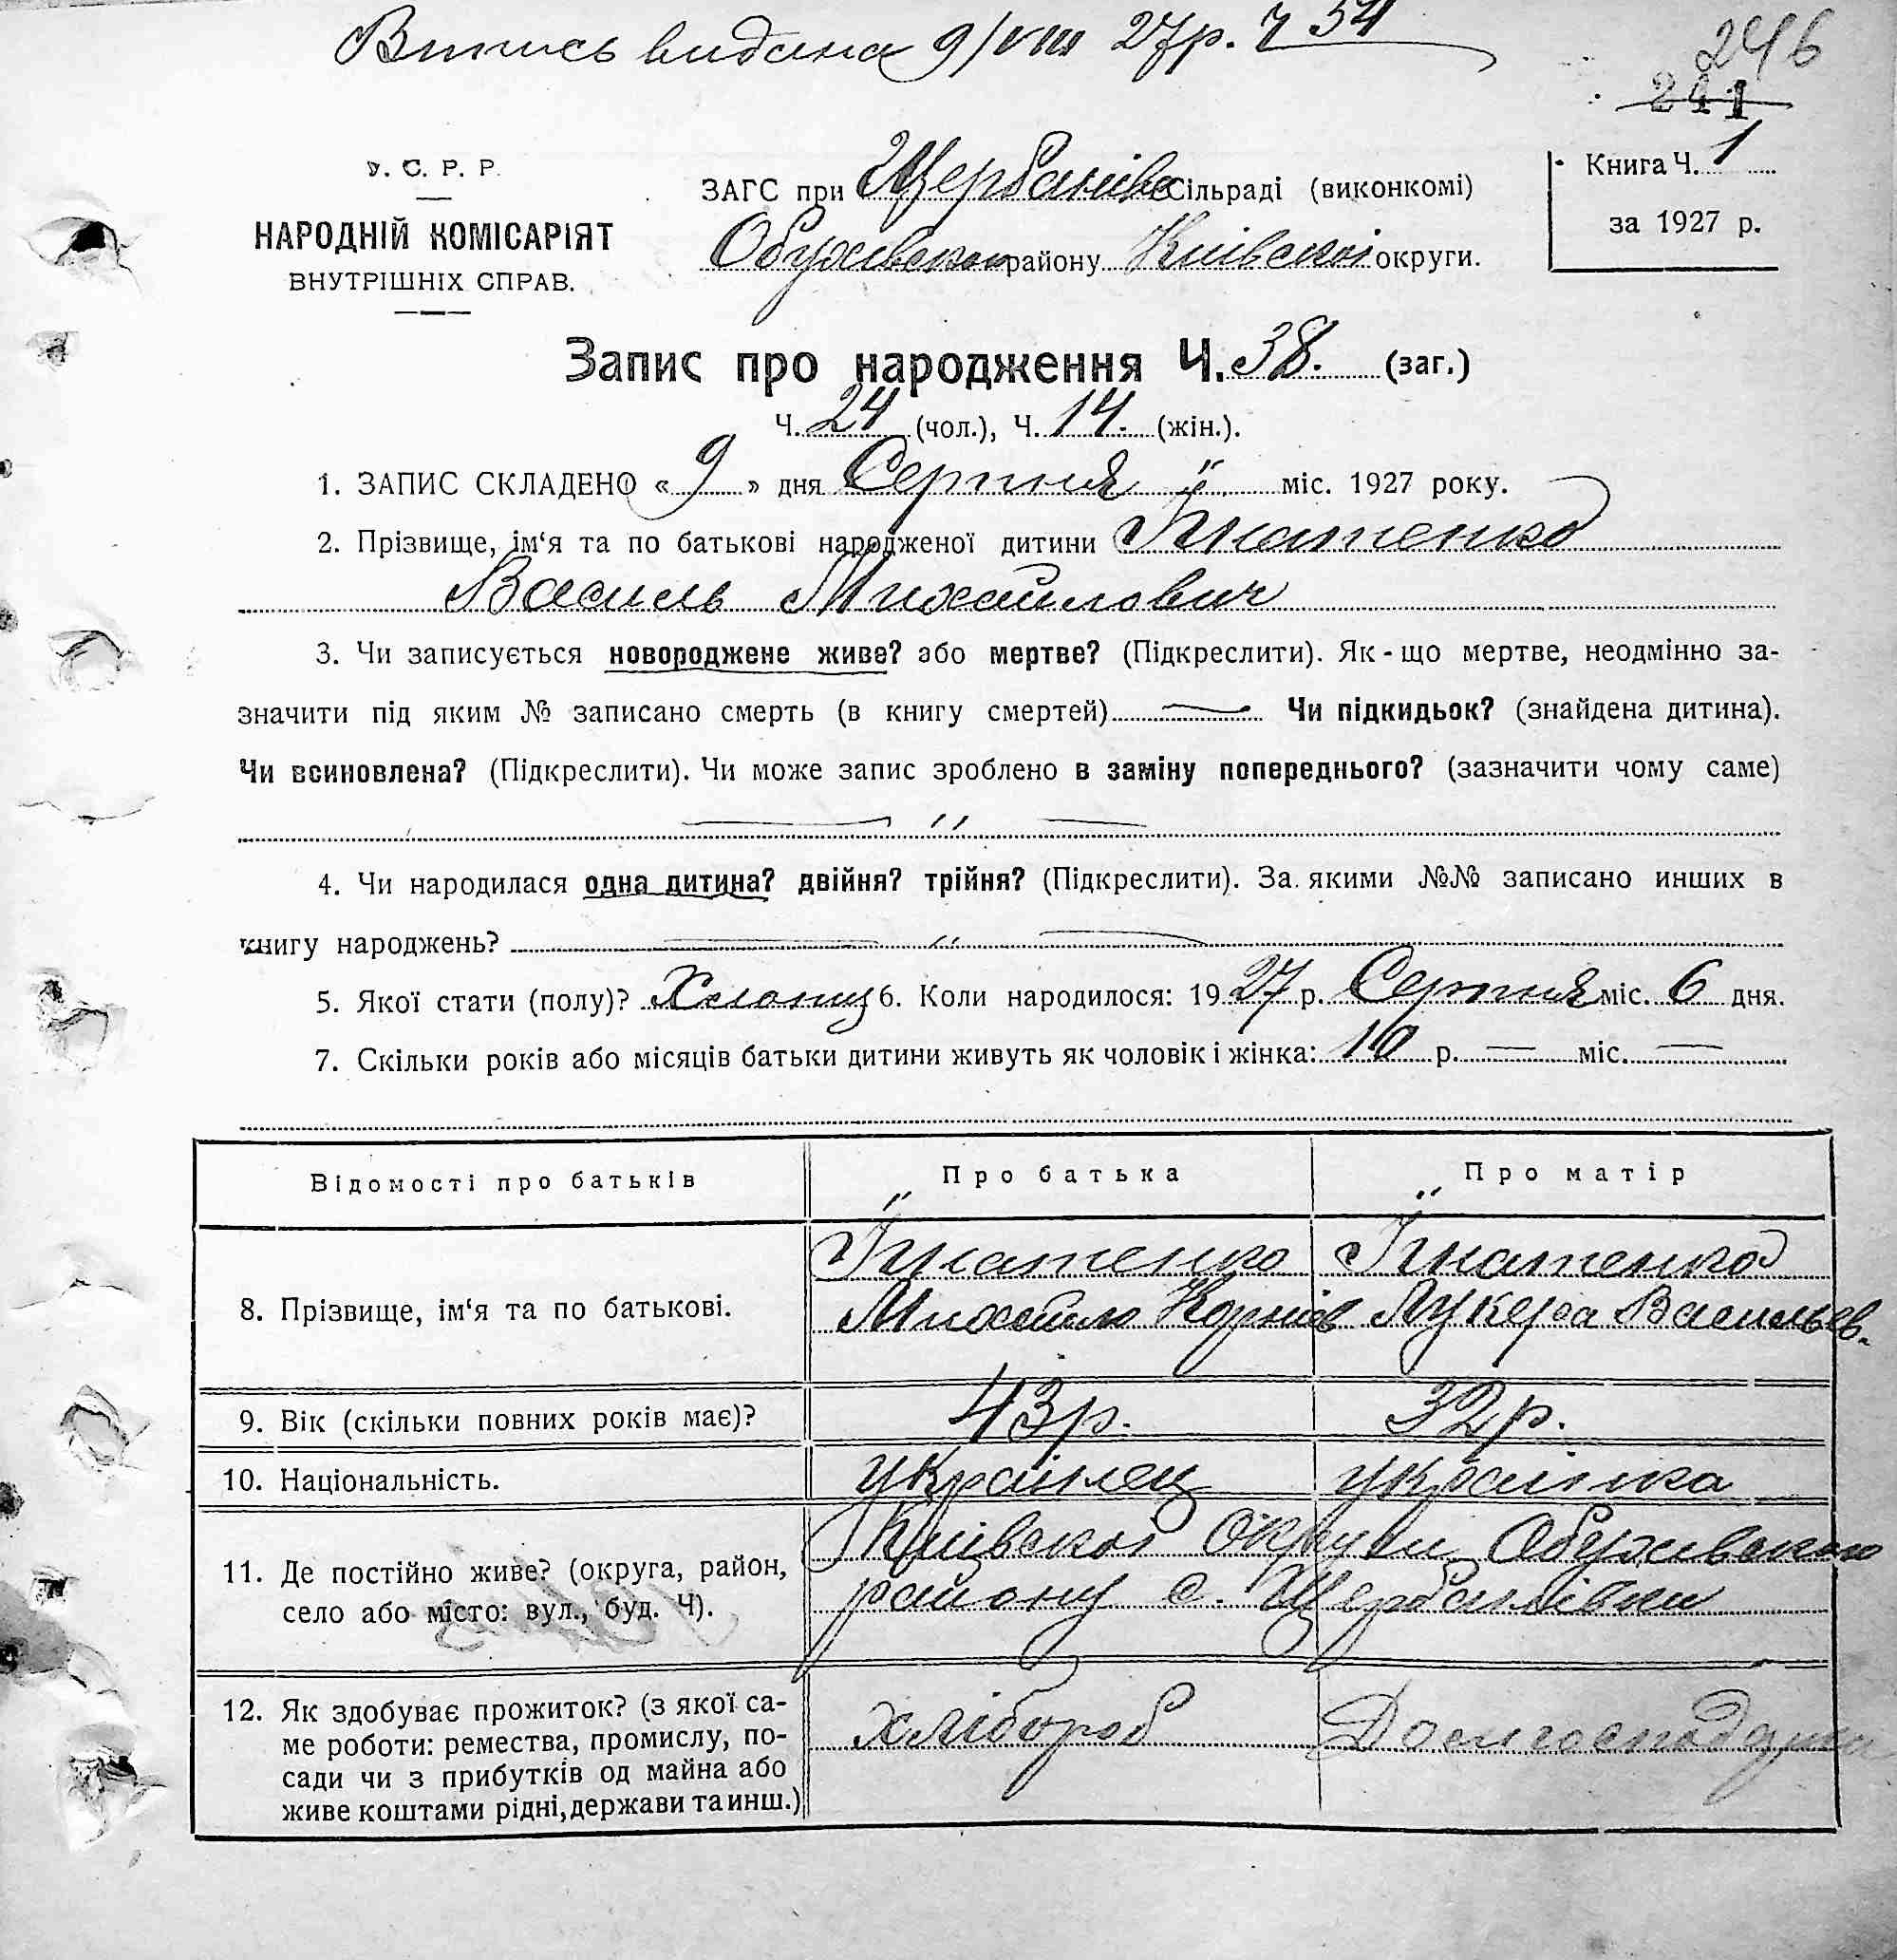 Витись видана 9/VIII 27р. Ч 54
246
241
У. С. Р. Р.
НАРОДНІЙ КОМІСАРІЯТ
ВНУТРІШНІХ СПРАВ.
ЗАГС при Щербанівс Сільраді (виконкомі)
Обухівського району Київської округи.
Книга Ч. 1
за 1927 р.
Запис про народження Ч. 38. (заг.)
Ч. 24 (чол.), Ч. 14. (жін.).
1. ЗАПИС СКЛАДЕНО « 9 » дня Серпня міс. 1927 року.
2. Прізвище, ім‘я та по батькові народженої дитини Їгнатенко
Василь Михайлович
3. Чи записується новороджене живе? або мертве? (Підкреслити). Як-що мертве, неодмінно за-
значити під яким № записано смерть (в книгу смертей) — Чи підкидьок? (знайдена дитина).
Чи всиновлена? (Підкреслити). Чи може запис зроблено в заміну попереднього? (зазначити чому саме)
— '' —
4. Чи народилася одна дитина? двійня? трійня? (Підкреслити). За якими №№ записано инших в
книгу народжень? — '' —
5. Якої стати (полу)? Хлопець 6. Коли народилося: 1927 р. Серпня міс. 6 дня.
7. Скільки років або місяців батьки дитини живуть як чоловік і жінка: 10 р. — міс. —
Відомості про батьків
Про батька
Про матір
8. Прізвище, ім‘я та по батькові.
Їгнатенко
Михайло Корнієв
Їгнатенко
Лукера Васильев.
9. Вік (скільки повних років має)?
43р.
32р.
10. Національність.
українец
українка
11. Де постійно живе? (округа, район,
село або місто: вул., буд. Ч).
Київскої Округи Обухівського
району с. Щербанівки
12. Як здобуває прожиток? (з якої са-
ме роботи: ремества, промислу, по-
сади чи з прибутків од майна або
живе коштами рідні, держави та инш.)
хлібороб
Домгосподарка